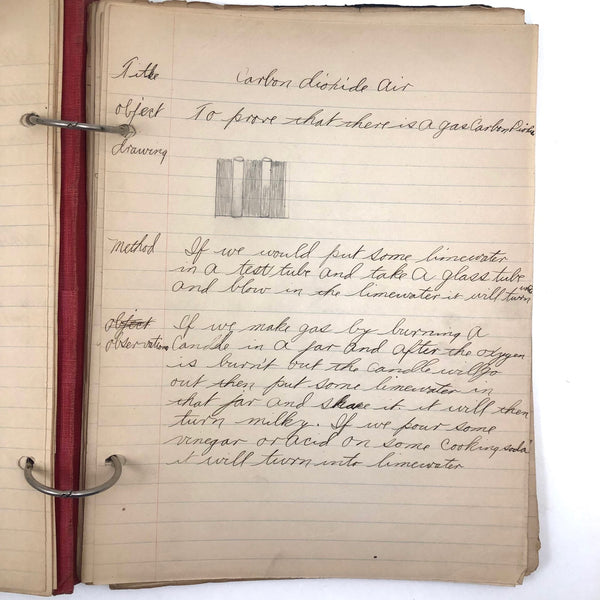 Title Carbon dioxide Air
object To prove that there is a gas Carbon
drawing
method If we would put some limewater
in a test tube and take a glass tube
and blow in the limewater it will turn
object If we make gas by burning a
observation Candle in a jar and after the oxygen
is burnt out the candle will go
out then put some limewater in
that jar and shake it it will then
turn milky. If we pour some
vinegar or acid on some cooking soda
it will turn into limewater